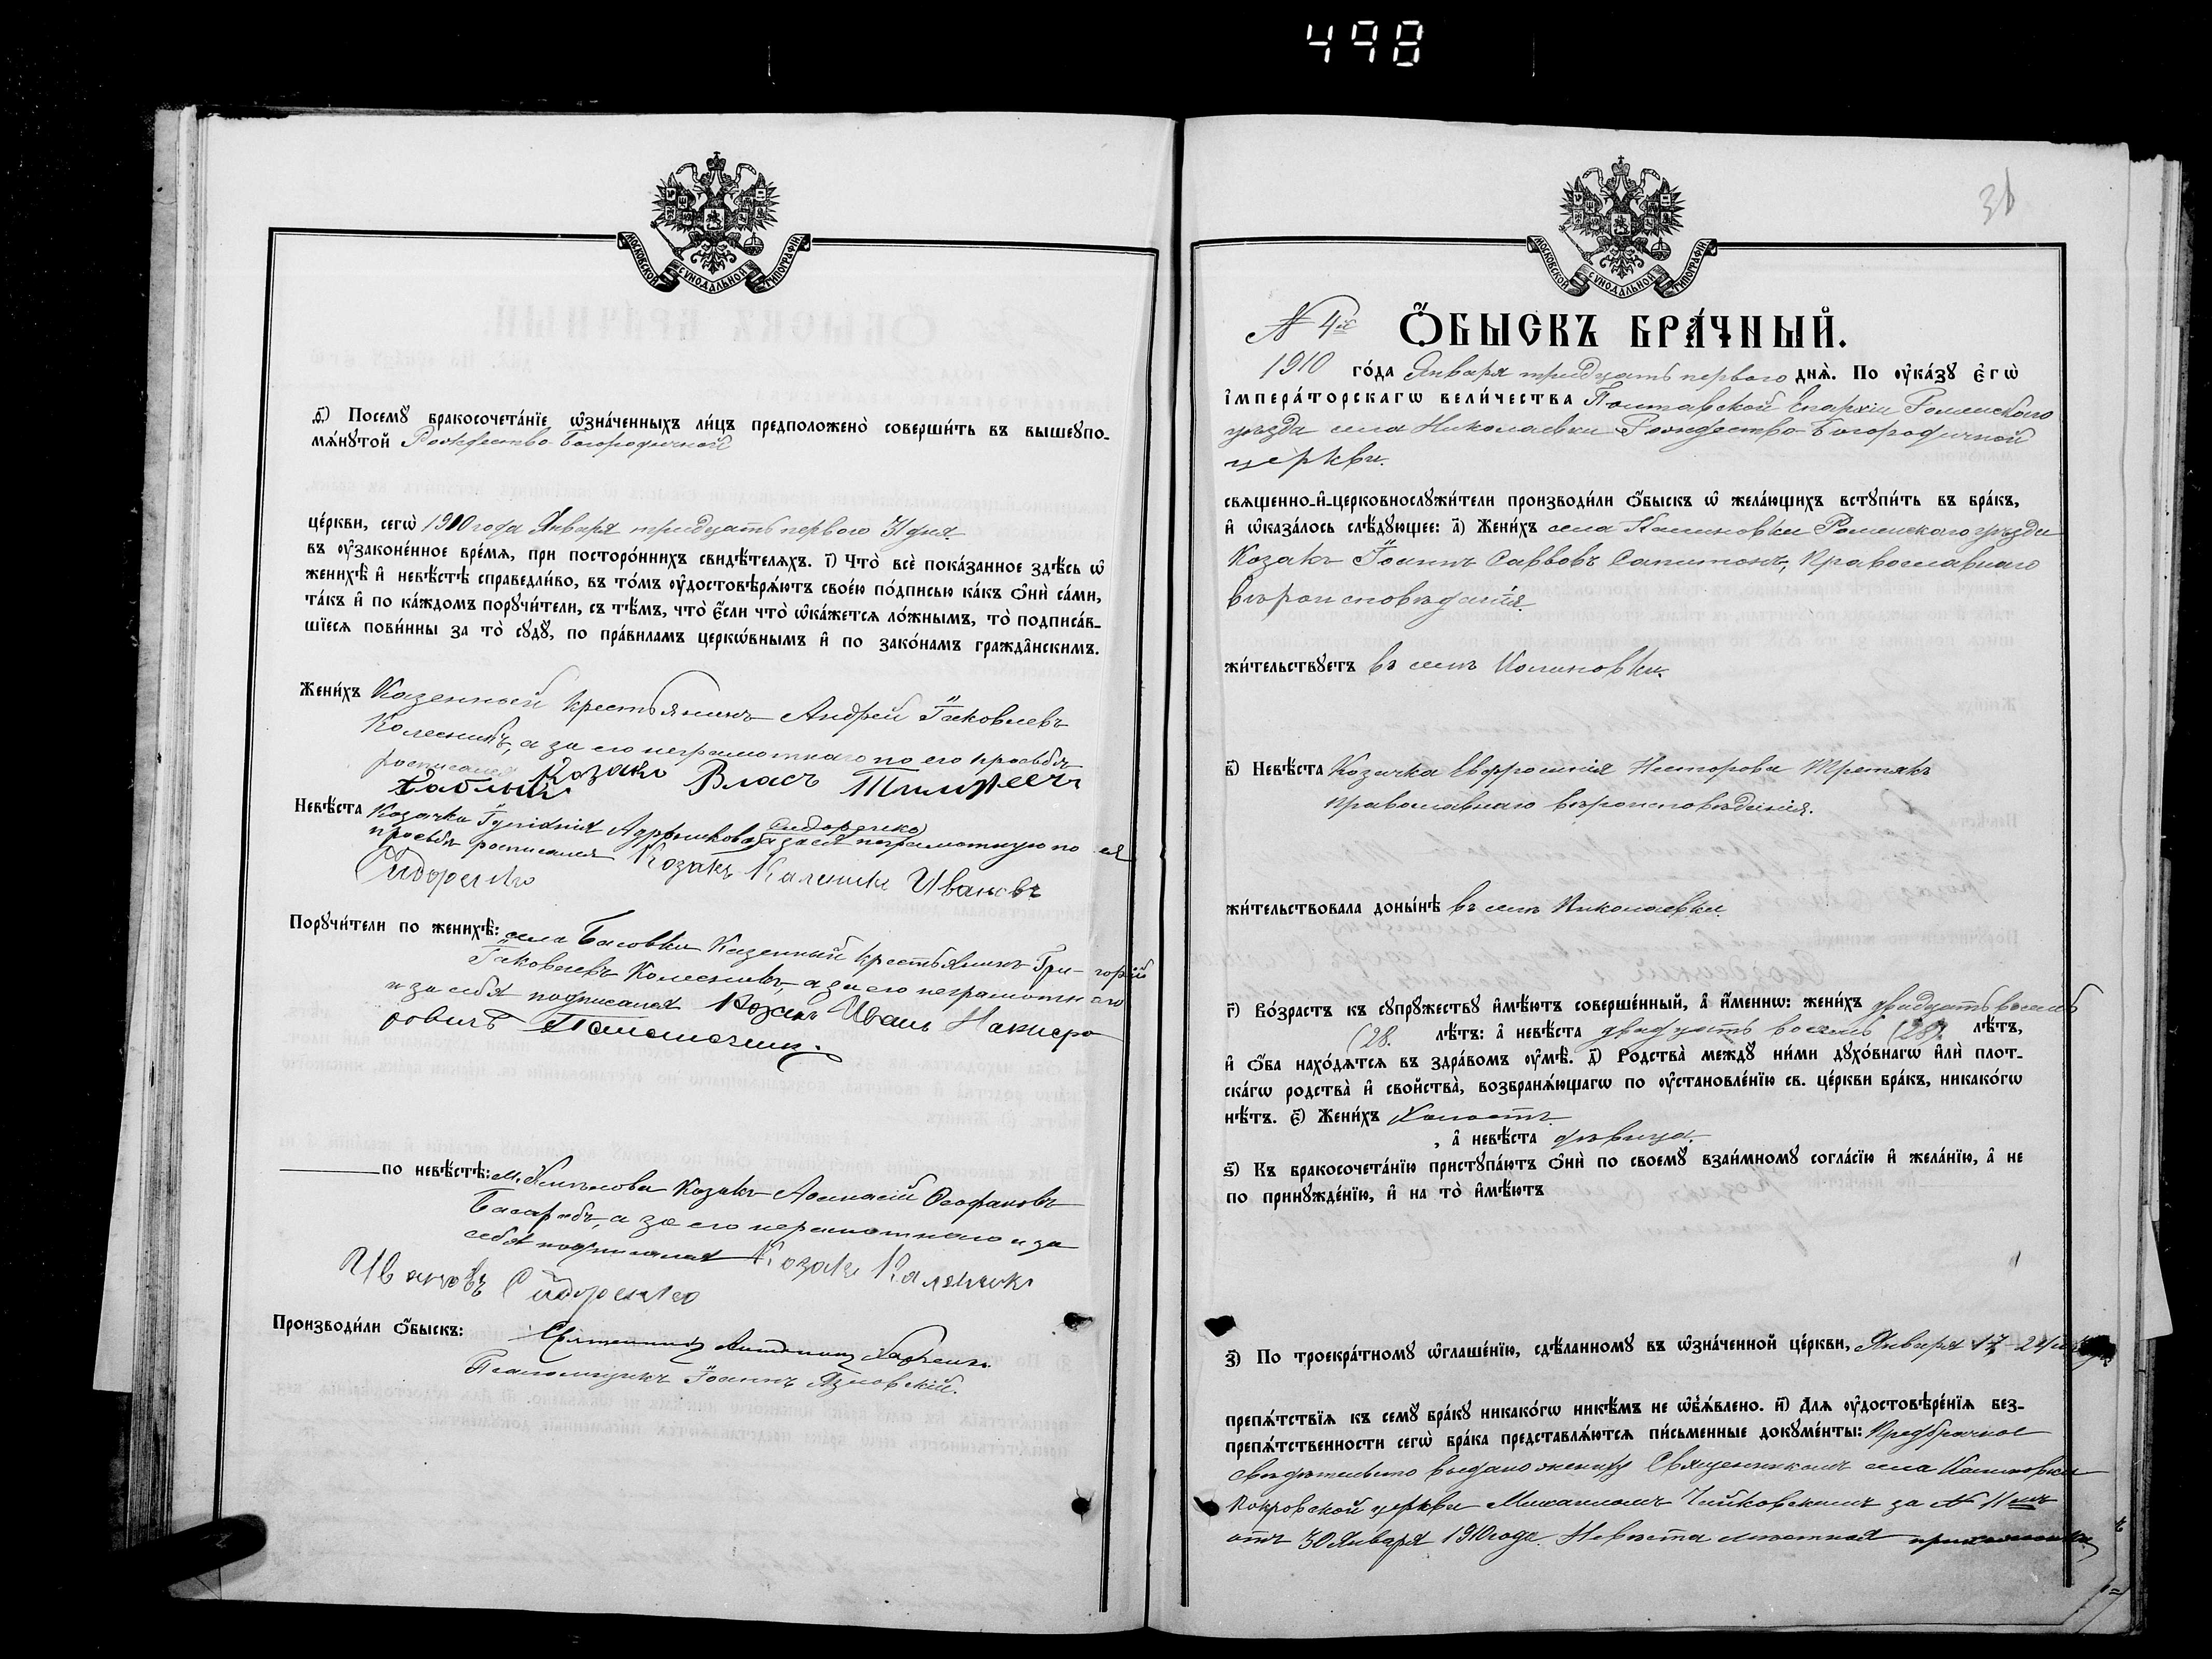 498
МОСКОВСКОЙ СѴНОДАЛЬНОЙ ТИПОГРАФІИ.
д҃) Посемꙋ бракосочета́нїе ѡ҆зна́ченныхъ ли́цъ предположено̀ соверши́ть въ вышеꙋпо-
мѧ́нꙋтой Рождество-Богородичной
це́ркви, сегѡ̀ 1910 года Января тридцать перваго 31 дня.
въ ᲂу҆законе́нное вре́мѧ, при посторо́ннихъ свидѣ́телѧхъ. і҃) Что̀ всѐ пока́занное здѣ́сь ѡ҆
женихѣ̀ и҆ невѣ́стѣ справедли́во, въ то́мъ ᲂу҆достовѣрѧ́ютъ свое́ю по́дписью ка́къ ѻ҆нѝ са́ми,
та́къ и҆ по ка́ждомъ порꙋчи́тели, съ тѣ́мъ, что̀ є҆́сли что̀ ѡ҆ка́жетсѧ ло́жнымъ, то̀ подписа́в-
шїесѧ пови́нны за то̀ сꙋдꙋ̀, по пра́виламъ церкѡ́внымъ и҆ по зако́намъ гражда̂нскимъ.
Жени́хъ Казенный крестьянинъ Андрей Іаковлевъ
Колесникъ, а за его неграмотнаго по его просьбѣ
росписался Козакъ Власъ
Невѣ́ста Козачка
Сидоренко
а за ея неграмотную по ея
просьбѣ росписался Козакъ Каленикъ Ивановъ
Сидоренко
Порꙋчи́тели по женихѣ̀: села Басовки Казенный крестьянинъ Григорій
Іаковлевъ Колесникъ, а за его неграмотнаго
и за себя подписался Козакъ Иванъ
по невѣ́стѣ: Козакъ Аѳанасій Ѳеофановъ
Басарабъ, а за его неграмотного и за
себя подписался Козакъ Каленикъ
Ивановъ Сидоренко
Производи́ли ѻ҆́быскъ: Священникъ
Псаломщикъ Іоаннъ
МОСКОВСКОЙ СѴНОДАЛЬНОЙ ТИПОГРАФІИ.
N 4й Ѻ҆́БЫСКЪ БРА́ЧНЫЙ.
1910 го́да Января тридцать перваго днѧ̀. По ᲂу҆ка́зꙋ є҆гѡ̀
і҆мпера́торскагѡ вели́чества Полтавской Епархіи Роменскаго
уѣзда села Николаевки Рождество-Богородичной
церкви.
свѧщенно-и҆-церковнослꙋжи́тели производи́ли ѻ҆́быскъ ѡ҆ жела́ющихъ встꙋпи́ть въ бра́къ,
и҆ ѡ҆каза́лось слѣ́дꙋющее: а҃) Жени́хъ села Калиновки Роменскаго уѣзда
Козакъ Іоаннъ Саввовъ Сапитонъ, Православнаго
вѣроисповѣданія.
жи́тельствꙋетъ въ селѣ Калиновки.
в҃) Невѣ́ста Козачка Евфросинія Несторова Третякъ
православнаго вѣроисповѣданія.
жи́тельствовала доны́нѣ въ селѣ Николаевки
г҃) Во́зрастъ къ сꙋпрꙋ́жествꙋ и҆мѣ́ютъ соверше́нный, а҆ и҆́меннѡ: жени́хъ двадцать восемь
(28. лѣ́тъ: а҆ невѣ́ста двадцать восемь (28). лѣ́тъ,
и҆ ѻ҆́ба нахо́дѧтсѧ въ здра́вомъ ᲂу҆мѣ̀. д҃) Родства̀ междꙋ ни́ми дꙋхо́внагѡ и҆лѝ плот-
ска́гѡ родства̀ и҆ свойства̀, возбранѧ́ющагѡ по ᲂу҆становле́нїю св. це́ркви бра́къ, никако́гѡ
нѣ́тъ. є҃) Жени́хъ Холостъ.
, а҆ невѣ́ста дѣвица.
ѕ҃) Къ бракосочета́нїю пристꙋпа́ютъ ѻ҆нѝ по своемꙋ̀ взаи́мномꙋ согла́сїю и҆ жела́нїю, а҆ не
по принꙋжде́нїю, и҆ на то̀ и҆мѣ́ютъ
з҃) По троекра́тномꙋ ѡ҆глаше́нїю, сдѣ́ланномꙋ въ ѡ҆зна́ченной це́ркви, Января 17, 24
препѧ́тствїѧ къ семꙋ̀ бра́кꙋ никако́гѡ никѣ́мъ не ѡ҆б̾ѧ́влено. и҃) Длѧ ᲂу҆достовѣре́нїѧ без-
препѧ́тственности сегѡ̀ бра́ка представлѧ́ютсѧ пи́сьменные докꙋме́нты: Предбрачное
свидѣтельство выдано жениху Священникомъ села Калиновки
Покровской церкви Михаиломъ Чайковскимъ за N 11мъ
отъ 30 Января 1910 года. Невѣста мѣстная прихожанка